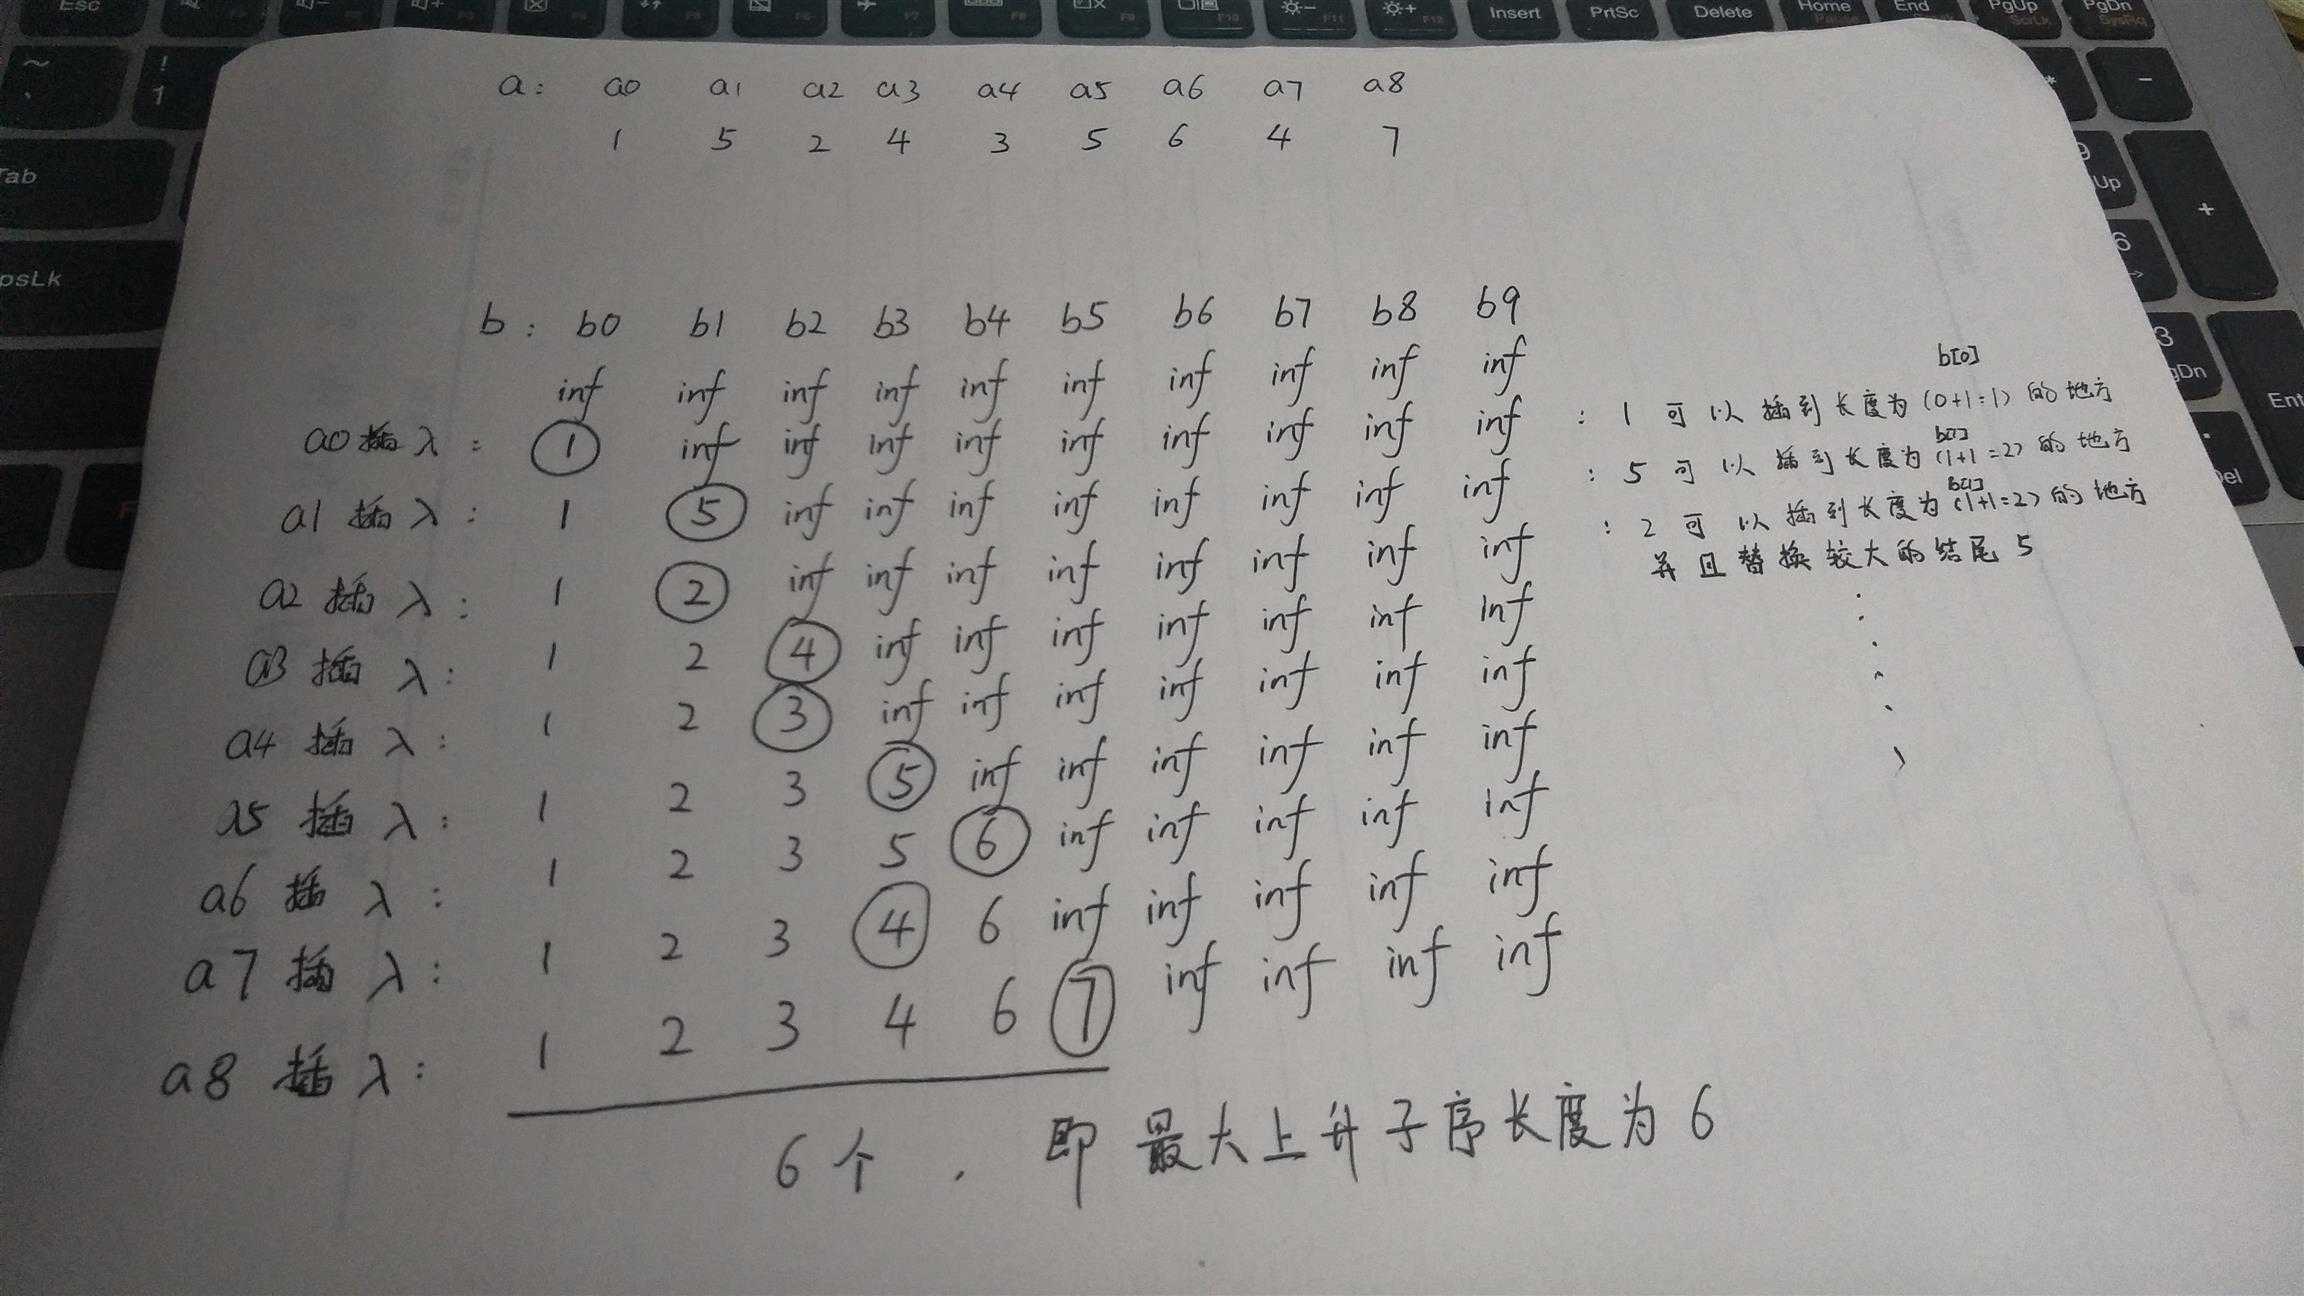 Esc F7 F8 F9 F10 F11 F12 Insert PrtSc Delete Home Pause End ScrLk PgUp PgDn SysRq
~ ! 1 * -
Tab 9 +
psLk 6
3 gDn Ent
. Del
a: a0 a1 a2 a3 a4 a5 a6 a7 a8
1 5 2 4 3 5 6 4 7
b: b0 b1 b2 b3 b4 b5 b6 b7 b8 b9
inf inf inf inf inf inf inf inf inf inf
a0插入: 1 inf inf inf inf inf inf inf inf inf : 1 可以插到长度为(0+1=1)的地方 b[0]
a1插入: 1 5 inf inf inf inf inf inf inf inf : 5 可以插到长度为(1+1=2)的地方 b[1]
a2插入: 1 2 inf inf inf inf inf inf inf inf : 2 可以插到长度为(1+1=2)的地方 b[1]
并且替换较大的结尾5
a3插入: 1 2 4 inf inf inf inf inf inf inf
a4插入: 1 2 3 inf inf inf inf inf inf inf
a5插入: 1 2 3 5 inf inf inf inf inf inf
a6插入: 1 2 3 5 6 inf inf inf inf inf
a7插入: 1 2 3 4 6 inf inf inf inf inf
a8插入: 1 2 3 4 6 7 inf inf inf inf
6个. 即最大上升子序长度为6